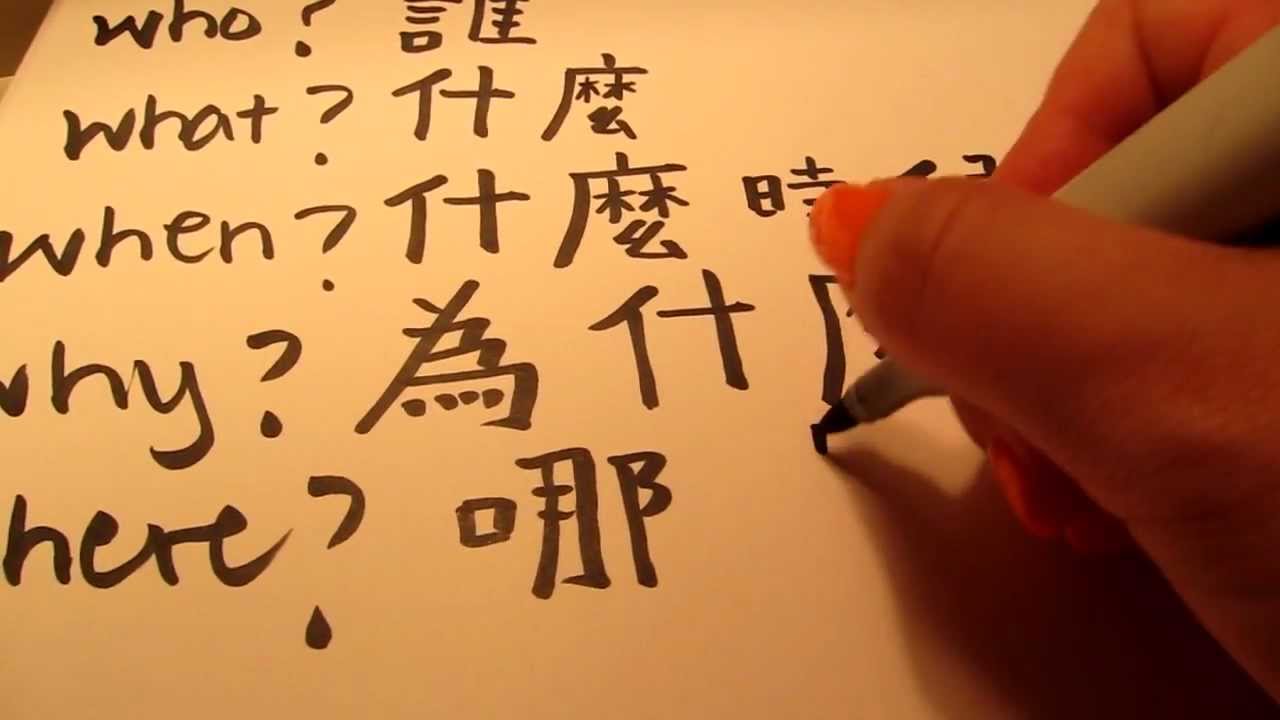 who? 誰
what? 什麼
when? 什麼 時
why? 為什
here? 哪